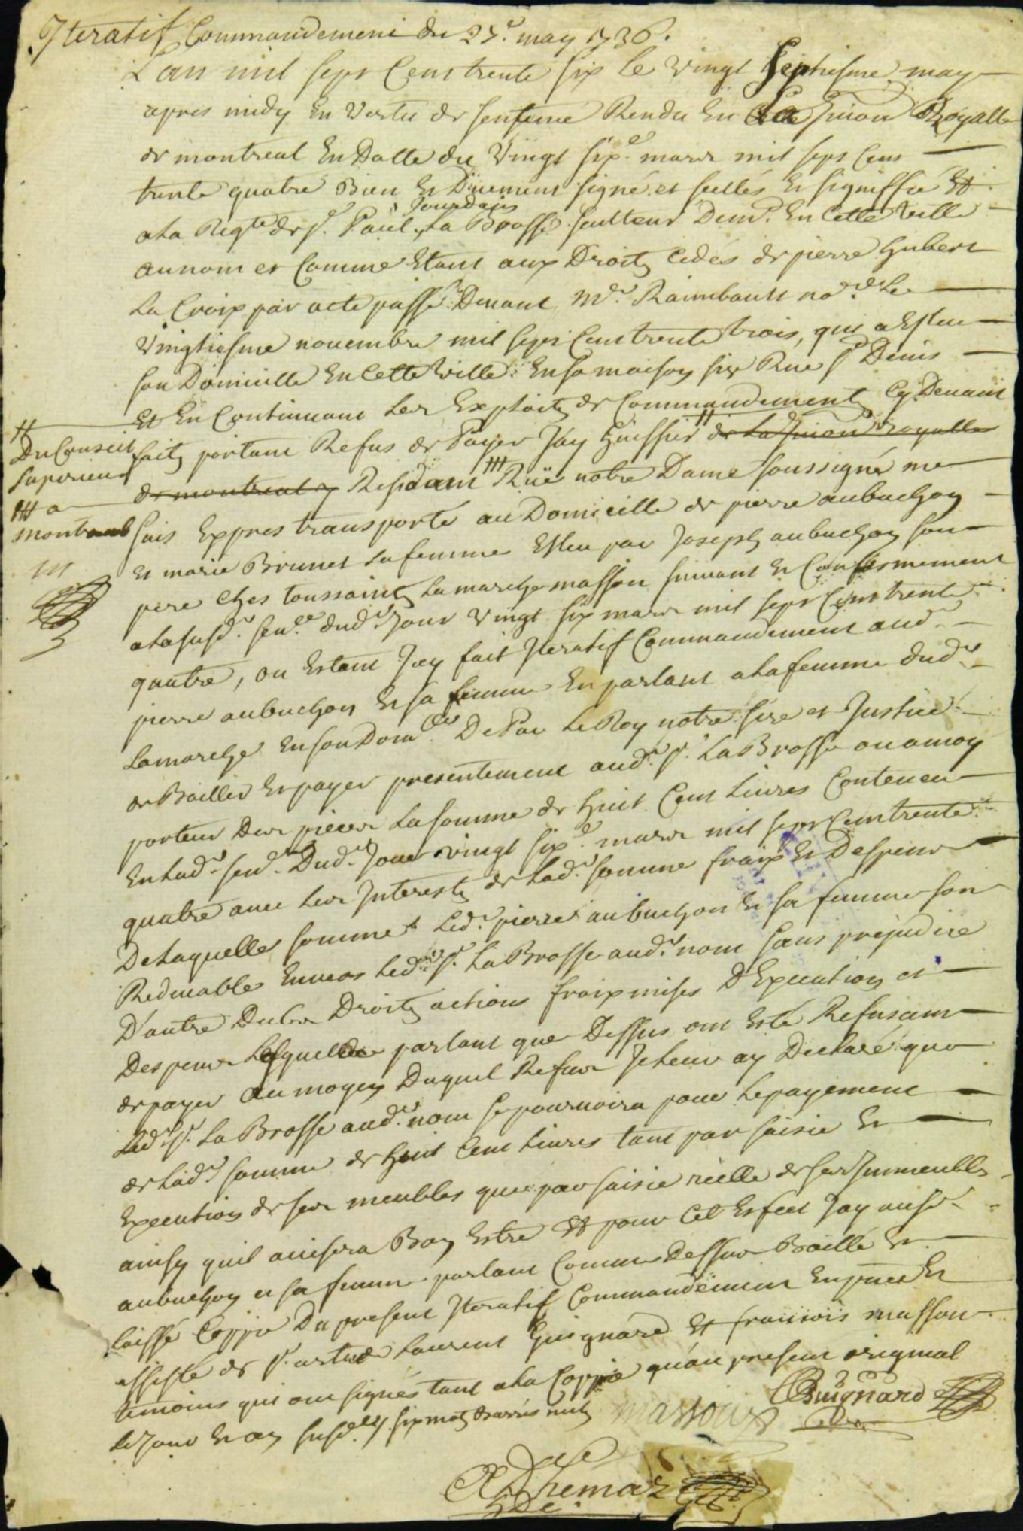 Iteratif Commandement du 27.e may 1736.
L'an mil sept Cens trente six le vingt Septiesme may
apres midy En Vertu de sentence Rendu En La Jurion Royalle
de montreal En Datte du Vingt six.e mars mil sept Cens
trente quatre Bien Et Duement signé et scellés Et signiffié Et
ala Reqte de Sr. Paul Jourdain La Brosse sculteur Demt. En Cette Ville
au nom et Comme Etant aux Droits Cedés de pierre hubert
La Croix par acte passé Devant Me. Raimbault nore. Le
Vingtiesme novembre mil sept Cens trente trois, qui a Eslue
son Domicille En Cette Ville En sa maison size Rue St Denis
Et En Continuant Les Exploits de Commandements Cy Devant
faits portant Refus de Payer Jay huissier de La Jurion Royalle
Du Conseil
superieur
de montreal y Residant Rüe notre Dame soussigné me
a
montreal
suis Expres transporté au Domicille de pierre aubuchon
Et marie Brunet sa femme Esleu par Joseph aubuchon son
pere Ches toussaint Lamarche masson suivant Et Conformement
ala susd. sence. dud. Jour Vingt six mars mil sept Cens trente
quatre, ou Estant Jay fait Iteratif Commandement aud.
pierre aubuchon Et sa femme En parlant ala femme dud.
Lamarche En son Domlle De Par Le Roy notre sire et Justice
de Bailler Et payer presentement aud. Sr. La Brosse ou a moy
porteur Des pieces La somme de huit Cent Livres Contenu
En Lad. send. Dud. Jour vingt six.e mars mil sept Cens trente
quatre avec Les Interests de Lad. somme fraix Et Despens
De Laquelles somme Led. pierre aubuchon Et sa femme son
Redevables Envers Led. Sr. La Brosse aud. nom sans prejudice
D'autre Du Les Droits actions fraix mises D'Execution et
Despens Lesquelles parlant que Dessus ont Esté Refusant
de payer au moyen Duquel Refus Je Leur ay Declaré que
Led. Sr. La Brosse aud. nom se pourvoira pour Le payement
de Lad. somme de huit Cent Livres tant par saisie Et
Execution de ses meubles que par saisie réelle de ses Immeubles
ainsy quil avisera Bon Estre Et pour Cet Esfect Jay ausd.
aubuchon et sa femme parlant Comme Dessus Baillé Et
laissé Coppie Du present Iteratif Commandement En presce Et
assisté de Laurent Guignard Et francois masson
temoins qui ont signés tant ala Coppie qu'au present original
Le Jour Et an susd. six mots Barrés nuls
massons Guignard